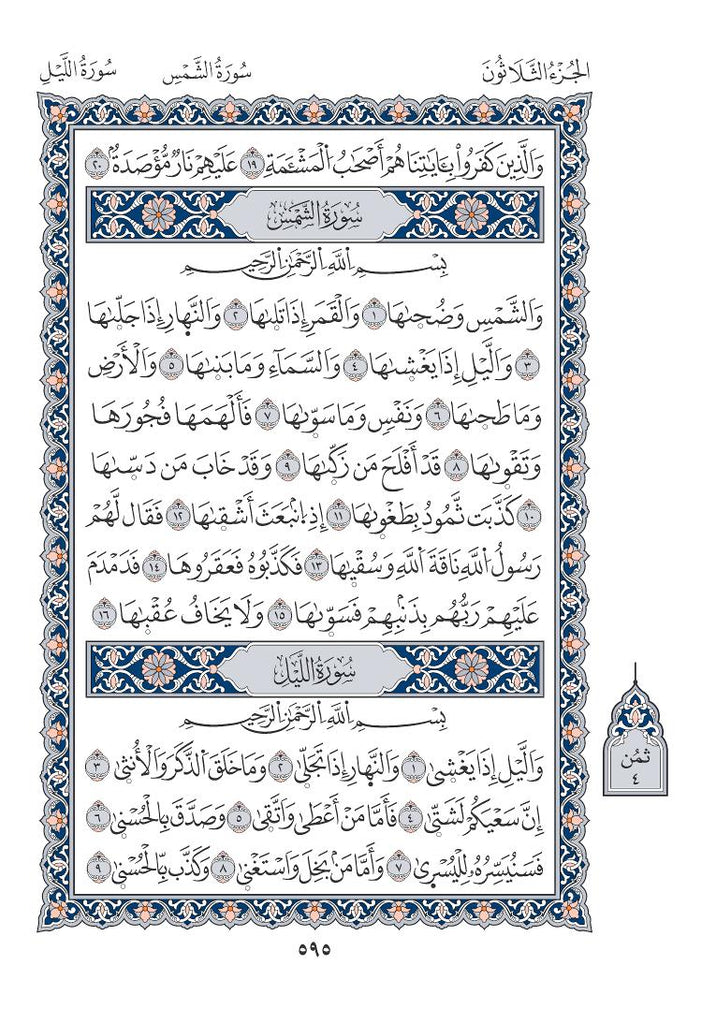 الجُزْءُ الثَّلَاثُونَ سُورَةُ الشَّمْسِ سُورَةُ اللَّيْلِ
وَالَّذِينَ كَفَرُواْ بِـَٔايَٰتِنَا هُمْ أَصْحَٰبُ الْمَشْـَٔمَةِ ١٩ عَلَيْهِمْ نَارٌ مُّؤْصَدَةٌ ٢٠
سُورَةُ الشَّمْسِ
بِسْمِ اللَّهِ الرَّحْمَٰنِ الرَّحِيمِ
وَالشَّمْسِ وَضُحَىٰهَا ١ وَالْقَمَرِ إِذَا تَلَىٰهَا ٢ وَالنَّهَارِ إِذَا جَلَّىٰهَا
٣ وَالَّيْلِ إِذَا يَغْشَىٰهَا ٤ وَالسَّمَآءِ وَمَا بَنَىٰهَا ٥ وَالْأَرْضِ
وَمَا طَحَىٰهَا ٦ وَنَفْسٍ وَمَا سَوَّىٰهَا ٧ فَأَلْهَمَهَا فُجُورَهَا
وَتَقْوَىٰهَا ٨ قَدْ أَفْلَحَ مَن زَكَّىٰهَا ٩ وَقَدْ خَابَ مَن دَسَّىٰهَا
١٠ كَذَّبَت ثَّمُودُ بِطَغْوَىٰهَا ١١ إِذِ انۢبَعَثَ أَشْقَىٰهَا ١٢ فَقَال لَّهُمْ
رَسُولُ اللَّهِ نَاقَةَ اللَّهِ وَسُقْيَٰهَا ١٣ فَكَذَّبُوهُ فَعَقَرُوهَا ١٤ فَدَمْدَمَ
عَلَيْهِمْ رَبُّهُم بِذَنۢبِهِمْ فَسَوَّىٰهَا ١٥ وَلَا يَخَافُ عُقْبَٰهَا ١٦
سُورَةُ اللَّيْلِ
بِسْمِ اللَّهِ الرَّحْمَٰنِ الرَّحِيمِ
وَالَّيْلِ إِذَا يَغْشَىٰ ١ وَالنَّهَارِ إِذَا تَجَلَّىٰ ٢ وَمَا خَلَقَ الذَّكَرَ وَالْأُنثَىٰ ٣
إِنَّ سَعْيَكُمْ لَشَتَّىٰ ٤ فَأَمَّا مَنْ أَعْطَىٰ وَاتَّقَىٰ ٥ وَصَدَّقَ بِالْحُسْنَىٰ ٦
فَسَنُيَسِّرُهُ لِلْيُسْرَىٰ ٧ وَأَمَّا مَنۢ بَخِلَ وَاسْتَغْنَىٰ ٨ وَكَذَّب بِّالْحُسْنَىٰ ٩
ثُمُن
٤
٥٩٥